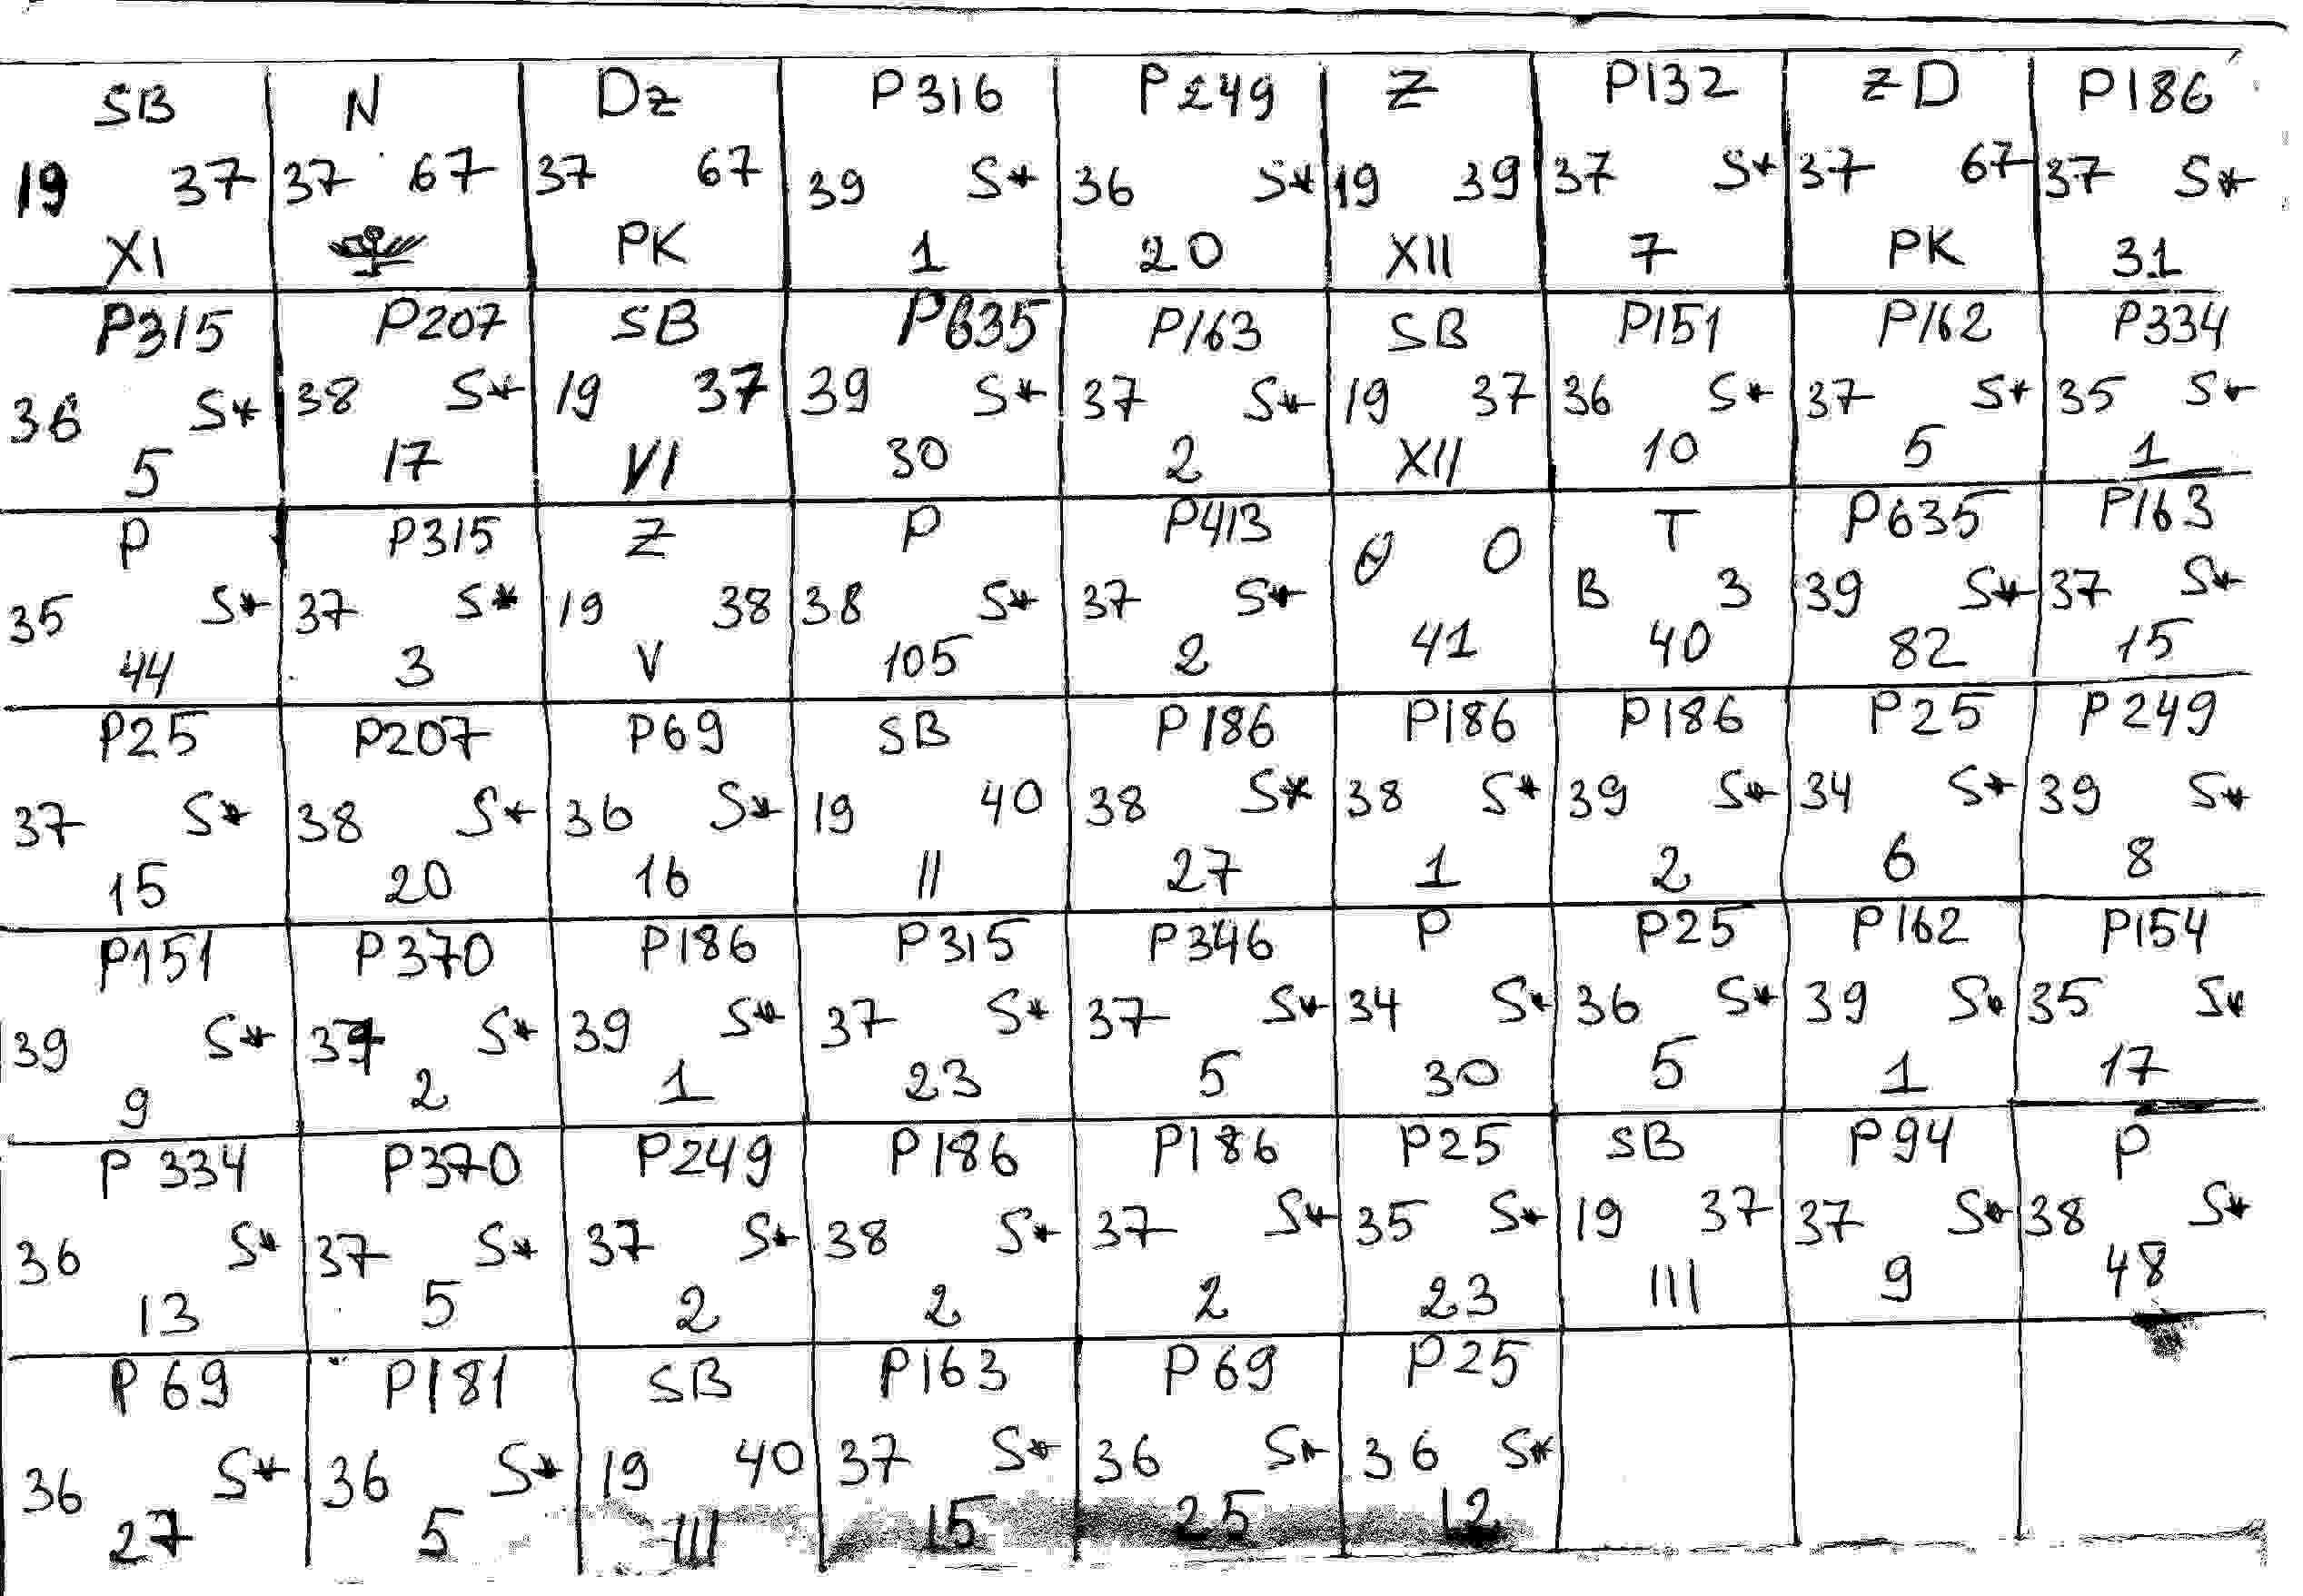 SB N Dz P316 P249 Z P132 ZD P186
19 37 37 67 37 67 39 S* 36 S* 19 39 37 S* 37 67 37 S*
XI PK 1 20 XII 7 PK 31
P315 P207 SB P635 P163 SB P151 P162 P334
36 S* 38 S* 19 37 39 S* 37 S* 19 37 36 S* 37 S* 35 S*
5 17 VI 30 2 XII 10 5 1
P P315 Z P P413 θ O T P635 P163
35 S* 37 S* 19 38 38 S* 37 S* B 3 39 S* 37 S*
44 3 V 105 2 41 40 82 15
P25 P207 P69 SB P186 P186 P186 P25 P249
37 S* 38 S* 36 S* 19 40 38 S* 38 S* 39 S* 34 S* 39 S*
15 20 16 II 27 1 2 6 8
P151 P370 P186 P315 P346 P P25 P162 P154
39 S* S* 39 S* 37 S* 37 S* 34 S* 36 S* 39 S* 35 S*
9 2 1 23 5 30 5 1 17
P334 P370 P249 P186 P186 P25 SB P94 P
36 S* 37 S* 37 S* 38 S* 37 S* 35 S* 19 37 37 S* 38 S*
13 5 2 2 2 23 III 9 48
P69 P181 SB P163 P69 P25
36 S* 36 S* 19 40 37 S* 36 S* 36 S*
27 5 III 15 25 12